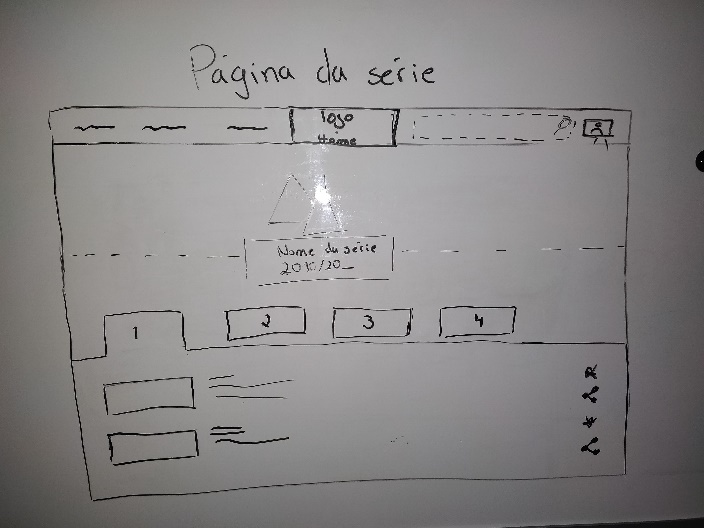 Página da série
logo
Home
Nome da série
2010/20_
1 2 3 4